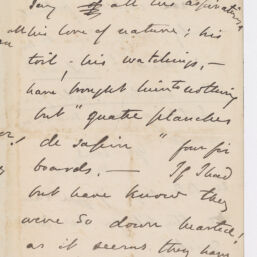 of all his aspirations
all his love of nature; his
toil - his watchings, -
have bought him to nothing
but "quatre planches
de sapin" four fir
boards. - If I had
but have know they
were so down hearted!
as it seems they have